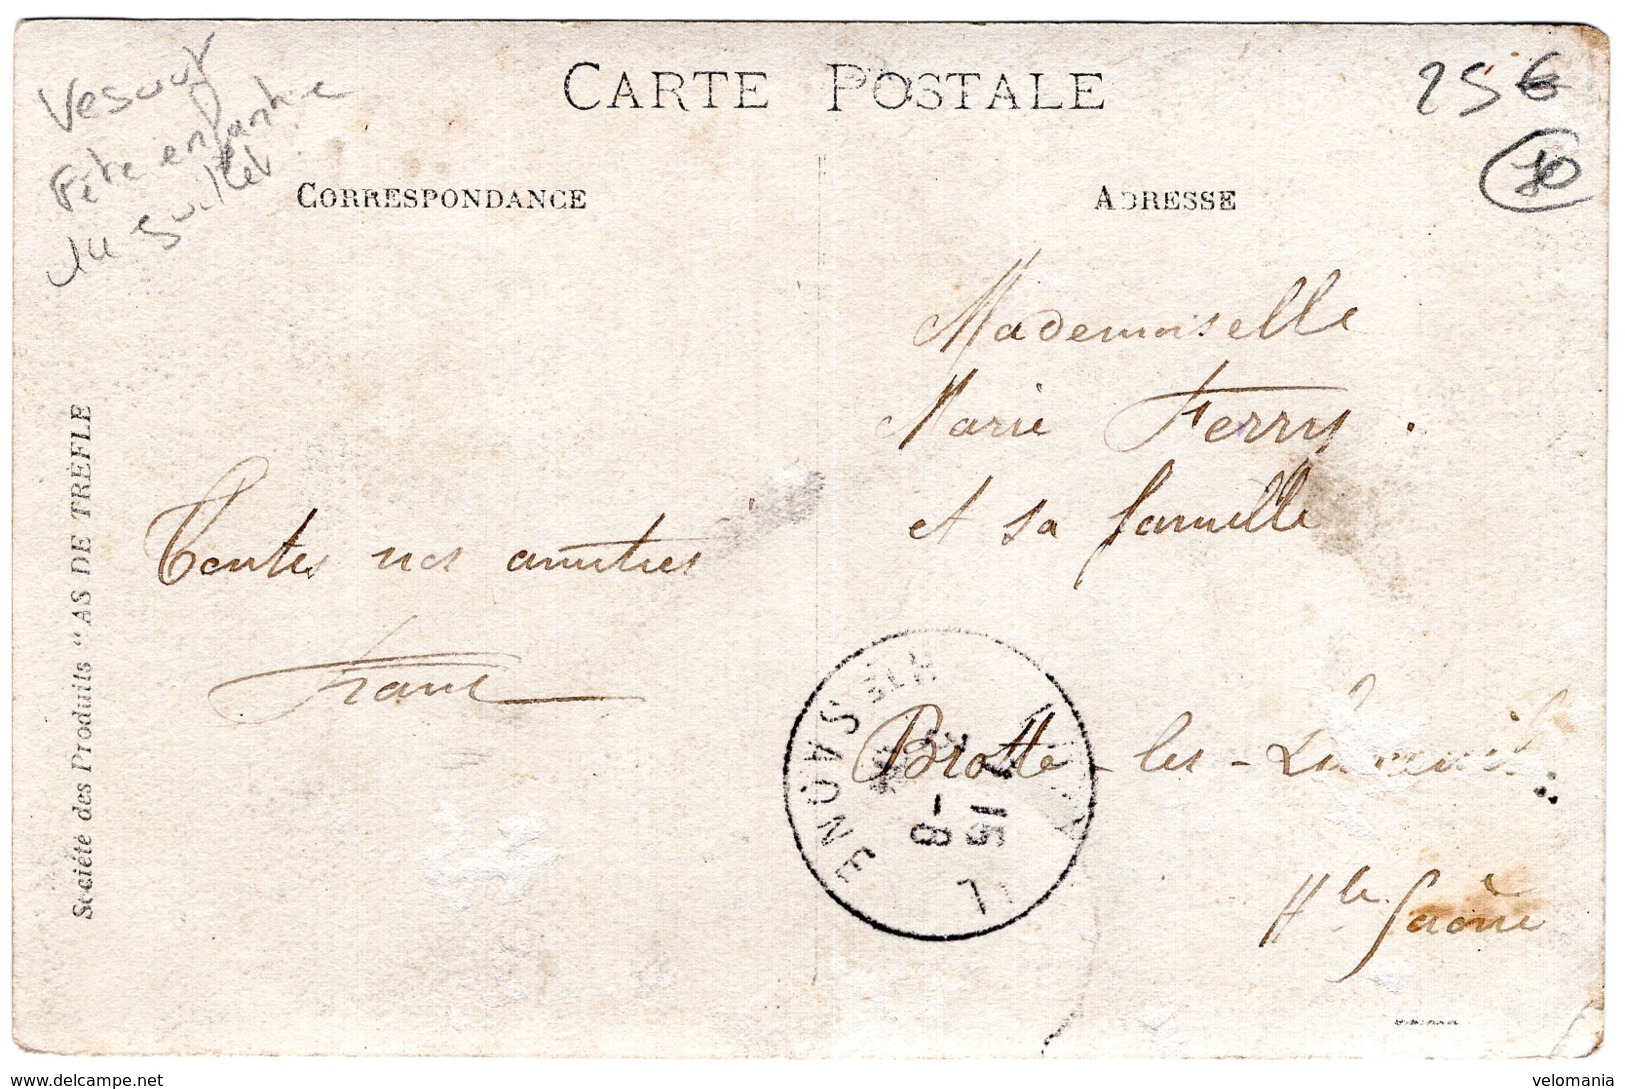 CARTE POSTALE
25 €
Vesoul
Fête enfantine
juillet
CORRESPONDANCE
ADRESSE
Mademoiselle
Marie Ferry.
et sa famille
Toutes nos amitiés
Franc
Brotte-les-Luxeuil
Hte Saône
HTE SAONE
15 -8
Société des Produits "AS DE TRÈFLE"
www.delcampe.net
velomania